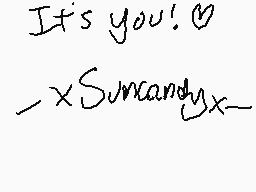 It's you! ♡
_xSuncandyx_